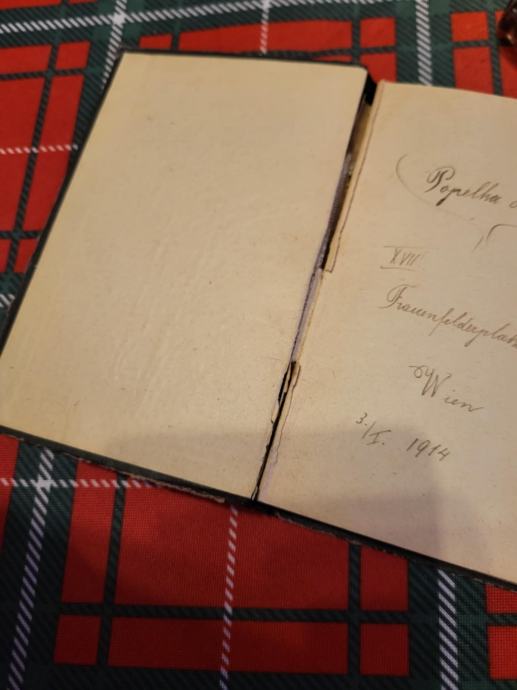 Popelka
XVII
Frauenfelderplatz
Wien
3./I. 1914